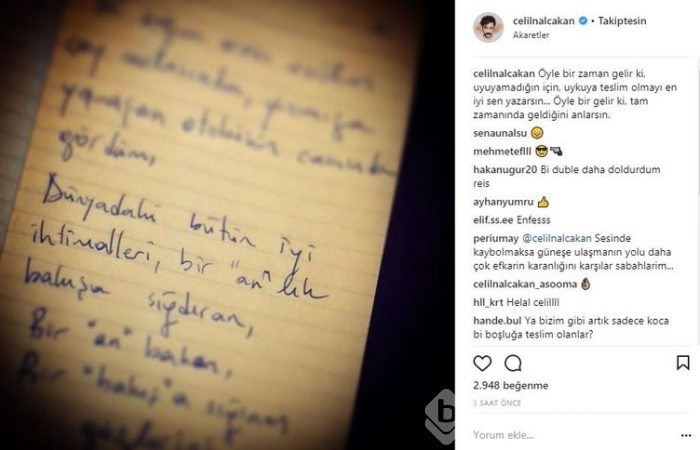 gördüm,
Dünyadaki bütün iyi
ihtimalleri, bir "an" lık
bakışa sığdıran,
Bir "an" bakan,
Bir "bakış"a sığınan
celilnalcakan • Takiptesin
Akaretler
celilnalcakan Öyle bir zaman gelir ki,
uyuyamadığın için, uykuya teslim olmayı en
iyi sen yazarsın... Öyle bir gelir ki, tam
zamanında geldiğini anlarsın.
senaunalsu 😊
mehmeteflll 😎🔫
hakanugur20 Bi duble daha doldurdum
reis
ayhanyumru 👍
elif.ss.ee Enfesss
periumay @celilnalcakan Sesinde
kaybolmaksa güneşe ulaşmanın yolu daha
çok efkarin karanlığını karşılar sabahlarim...
celilnalcakan_asooma 👌🏿
hll_krt Helal celillll
hande.bul Ya bizim gibi artık sadece koca
bi boşluğa teslim olanlar?
2.948 beğenme
6 SAAT ÖNCE
Yorum ekle...
b